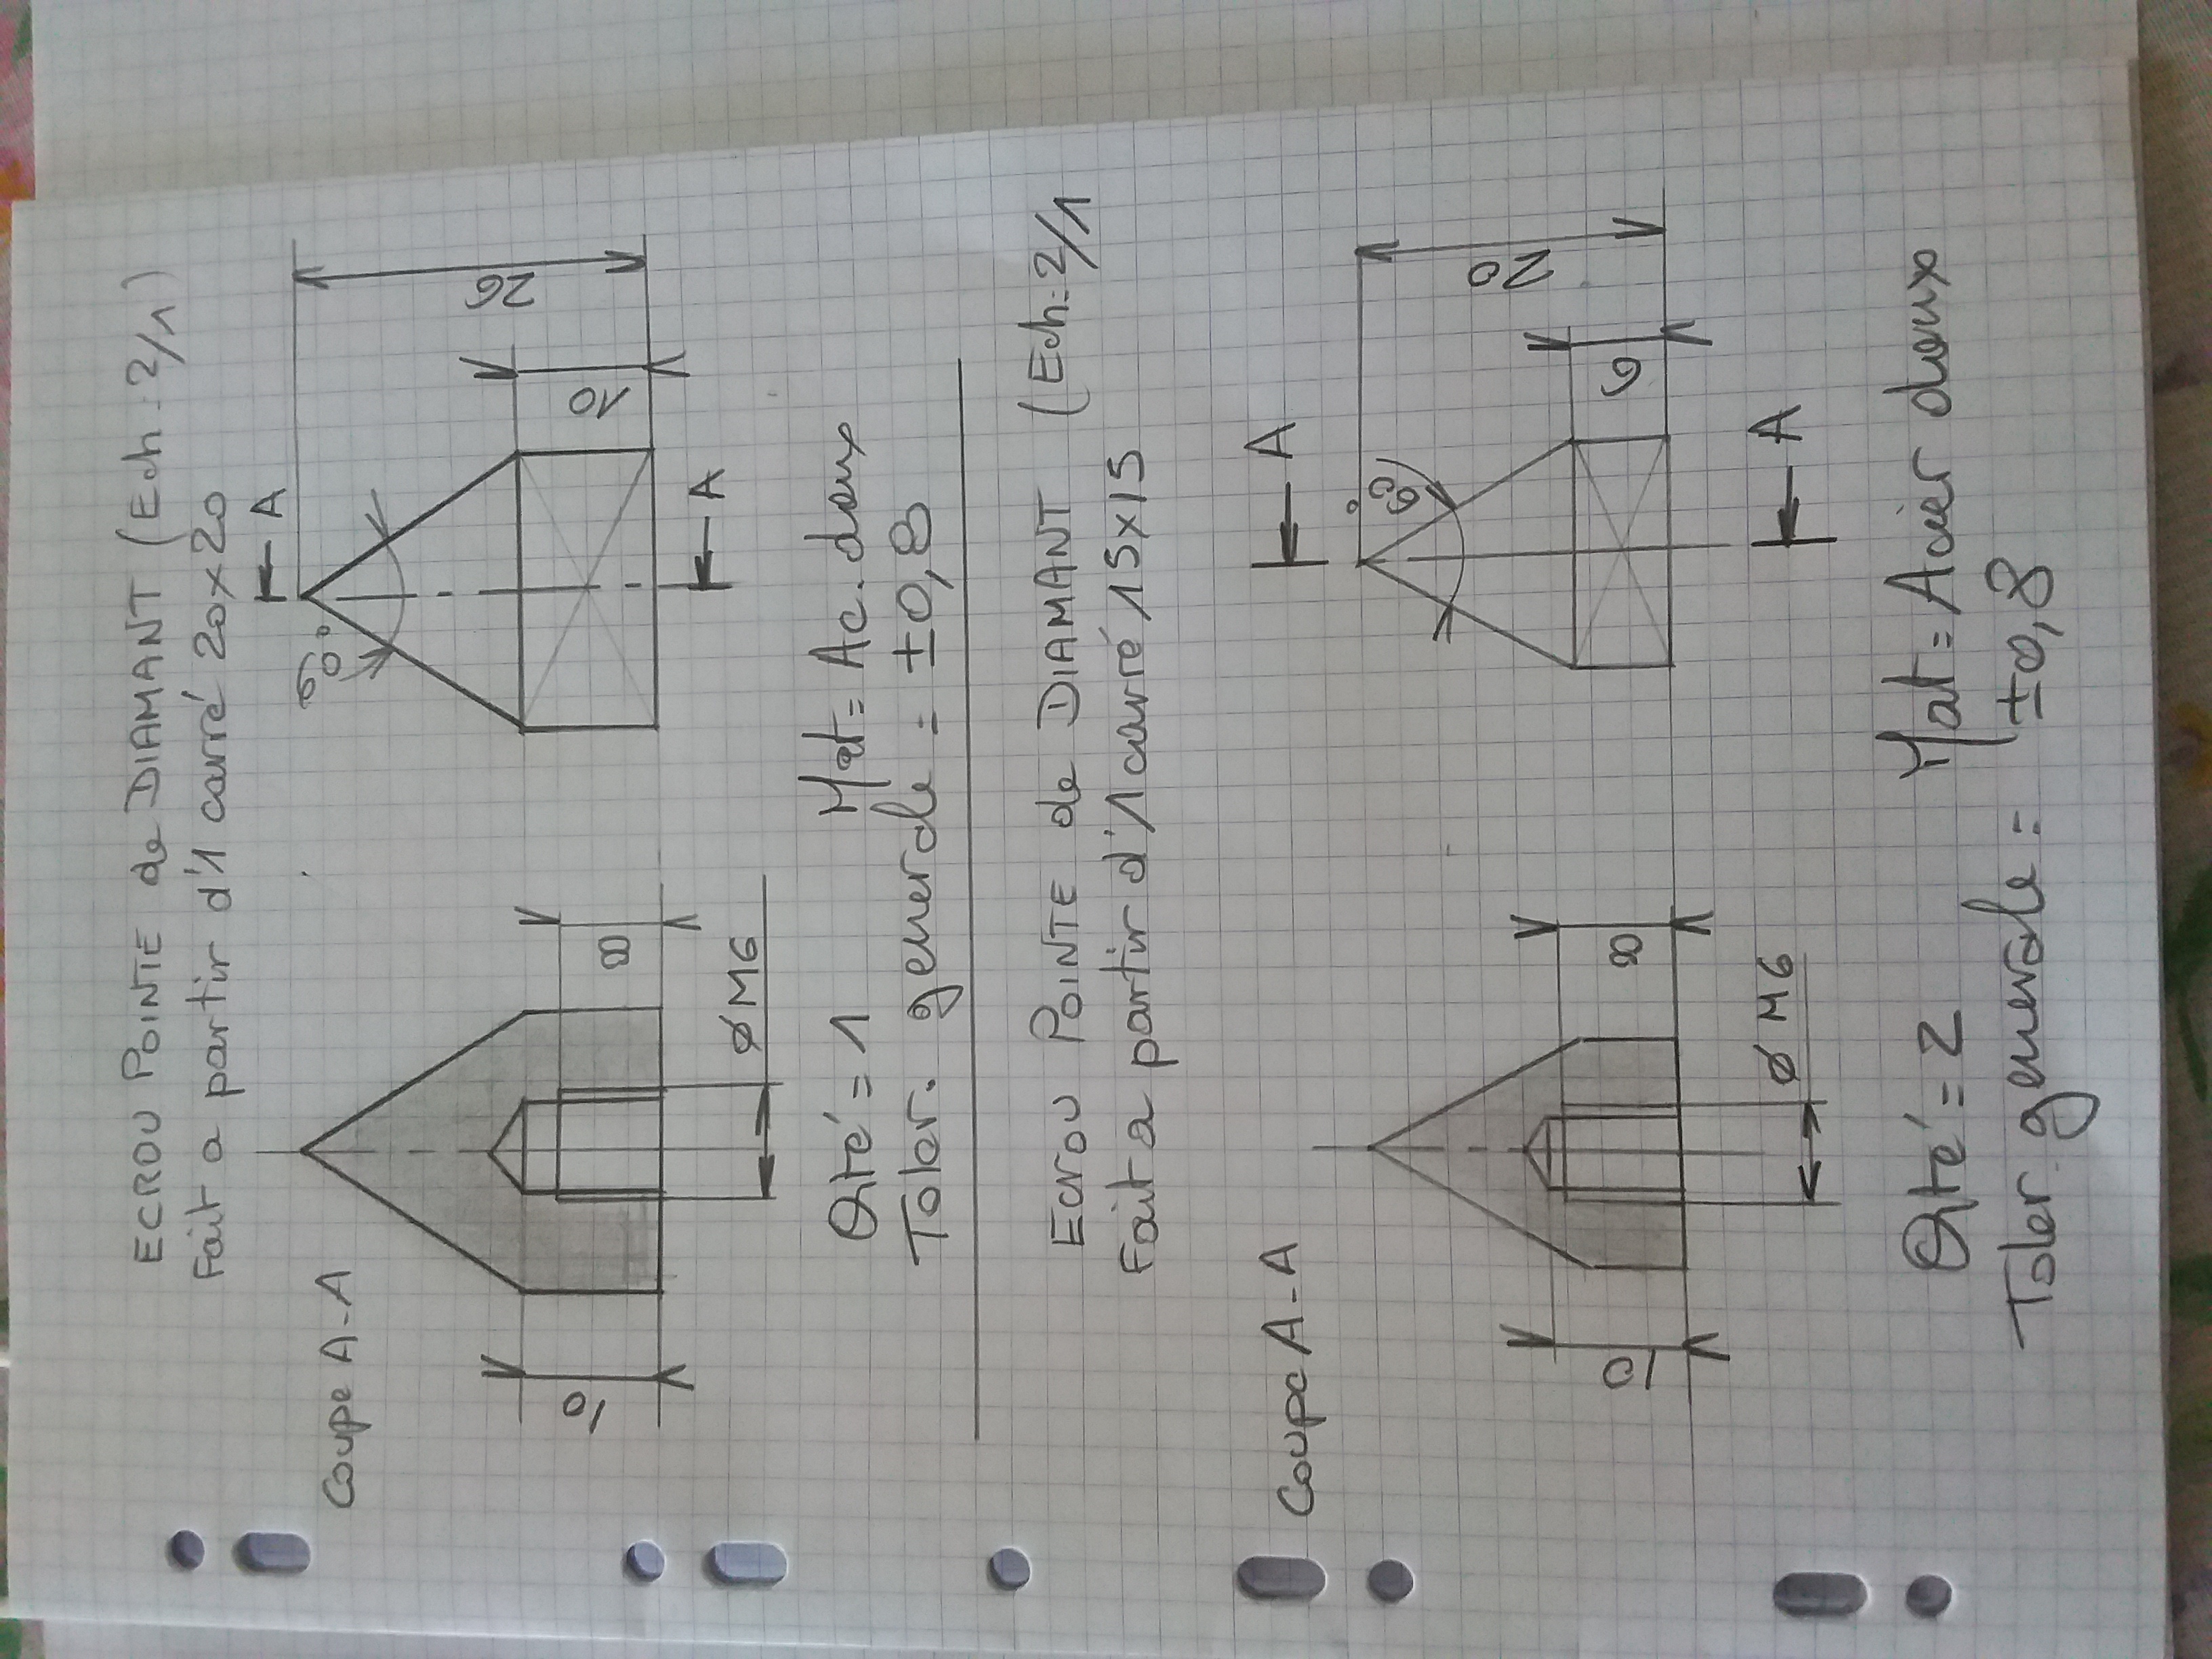 ECROU POINTE de DIAMANT (Ech: 2/1)
Fait a partir d'1 carré 20x20
Coupe A-A
A
60°
26
10
A
10
8
ØM6
Qté = 1 Mat = Ac. doux
Toler. generale = ±0,8
ECROU POINTE de DIAMANT (Ech: 2/1
Fait a partir d'1 carré 15x15
Coupe A-A
A
60°
20
A
10
8
ØM6
Qté = 2 Mat = Acier doux
Toler. generale = ±0,8